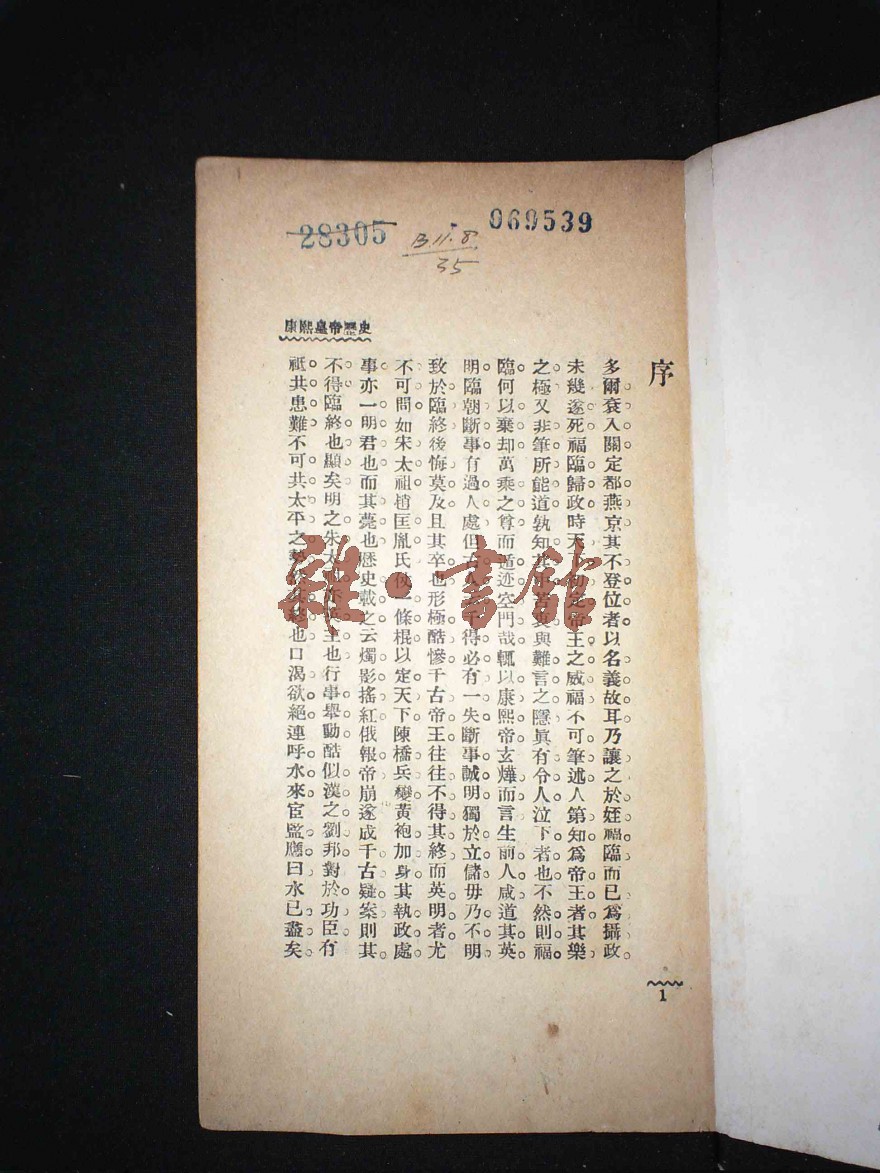 28305
13.11.8.
35
069539
康熙皇帝歷史
序
多爾袞入關定都燕京其不登位者以名義故耳乃讓之於姪福臨而已爲攝政
未幾遂死福臨歸政時天下初定帝王之威福不可筆述人第知爲帝王者其樂
之極又非筆所能道孰知其中苦衷與難言之隱眞有令人泣下者也不然則福
臨何以棄却萬乘之尊而遁迹空門哉輒以康熙帝玄燁而言生前人咸道其英
明臨朝斷事有過人處但古人千得必有一失斷事誠明獨於立儲毋乃不明
致於臨終後悔莫及且其卒也形極酷慘千古帝王往往不得其終而英明者尤
不可問如宋太祖趙匡胤氏仗一條棍以定天下陳橋兵變黃袍加身其執政處
事亦一明君也而其薨也歷史載之云燭影搖紅俄報帝崩遂成千古疑案則其
不得臨終也顯矣明之朱太祖亦英主也行事舉動酷似漢之劉邦對於功臣有
祗共患難不可共太平之也口渴欲絕連呼水來宦監應曰水已盡矣
1
雜·書館